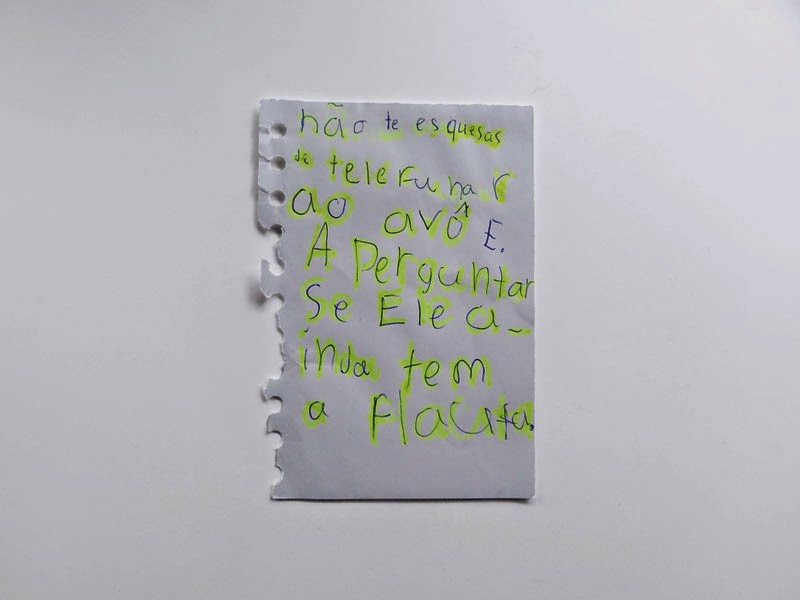 não te esquesas
de telefunar
ao avô E.
A Perguntar
Se Ele a_
inda tem
a Flauta.